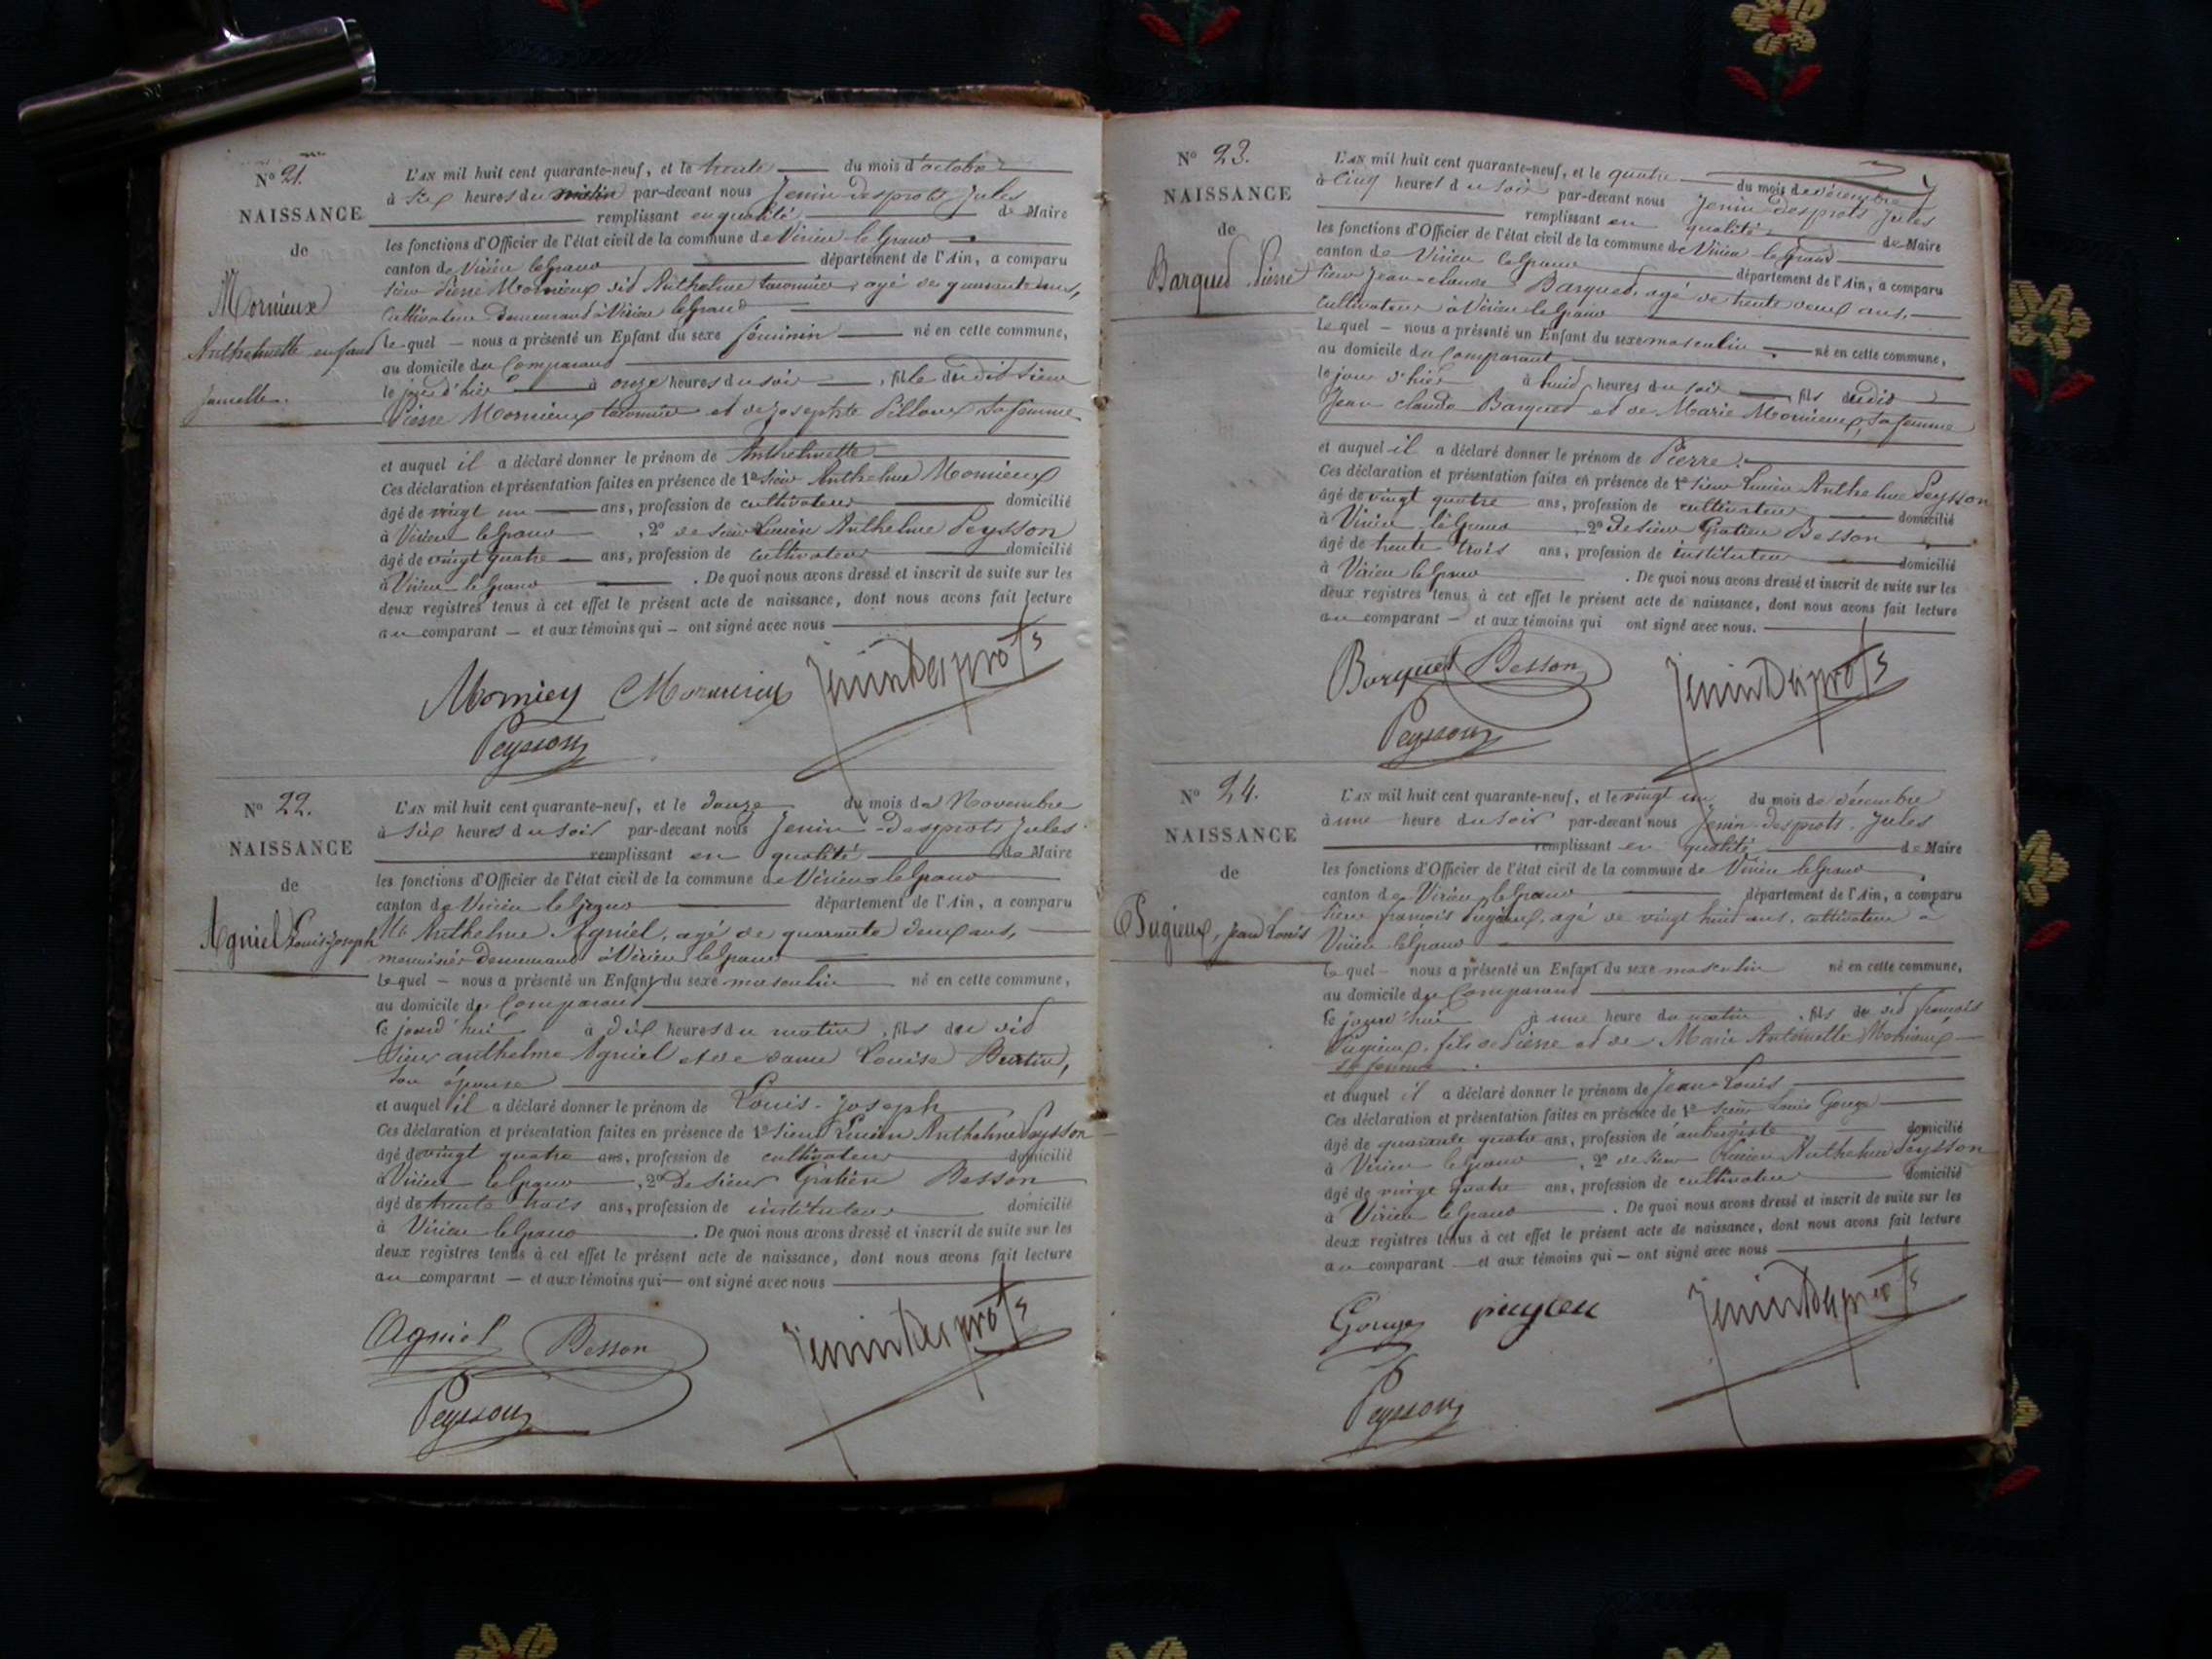 N° 21.
NAISSANCE
de
Mornieux
Anthelmette enfant
jumelle.
L'AN mil huit cent quarante-neuf, et le trente du mois d'octobre
à six heures du matin par-devant nous Jenin desprots, Jules
remplissant en qualité de Maire
les fonctions d'Officier de l'état civil de la commune de Virieu le Grand
canton de Virieu le Grand département de l'Ain, a comparu
sieur Pierre Mornieux dit Anthelme agé de quarante ans,
Cultivateur demeurant à Virieu le Grand
lequel nous a présenté un Enfant du sexe féminin né en cette commune,
au domicile du Comparant
le jour d'hier à onze heures du soir, fille du dit sieur
Pierre Mornieux et de Josephte Pilloux sa femme
et auquel il a déclaré donner le prénom de Anthelmette
Ces déclaration et présentation faites en présence de 1° sieur Anthelme Mornieux
âgé de vingt un ans, profession de cultivateur domicilié
à Virieu le Grand, 2° de sieur Lucien Anthelme Peysson
âgé de vingt quatre ans, profession de cultivateur domicilié
à Virieu le Grand. De quoi nous avons dressé et inscrit de suite sur les
deux registres tenus à cet effet le présent acte de naissance, dont nous avons fait lecture
au comparant et aux témoins qui ont signé avec nous
Morniey Mornieux JeninDesprots
Peysson
N° 22.
NAISSANCE
de
Agniel Louis joseph
L'AN mil huit cent quarante-neuf, et le douze du mois de Novembre
à six heures du soir par-devant nous Jenin-desprots Jules
remplissant en qualité de Maire
les fonctions d'Officier de l'état civil de la commune de Virieu le Grand
canton de Virieu le Grand département de l'Ain, a comparu
Anthelme Agniel, agé de quarante deux ans,
menuisier demeurant à Virieu le Grand
lequel nous a présenté un Enfant du sexe masculin né en cette commune,
au domicile du Comparant
ce jourd'hui à dix heures du matin, fils du dit
sieur anthelme Agniel et de dame Louise Burtin,
son épouse
et auquel il a déclaré donner le prénom de Louis-Joseph
Ces déclaration et présentation faites en présence de 1° sieur Lucien Anthelme Peysson
âgé de vingt quatre ans, profession de cultivateur domicilié
à Virieu le Grand, 2° de sieur Gratien Besson
âgé de trente trois ans, profession de instituteur domicilié
à Virieu le Grand. De quoi nous avons dressé et inscrit de suite sur les
deux registres tenus à cet effet le présent acte de naissance, dont nous avons fait lecture
au comparant et aux témoins qui ont signé avec nous
Agniel Besson JeninDesprots
Peysson
N° 23.
NAISSANCE
de
Barqued Pierre
L'AN mil huit cent quarante-neuf, et le quatre du mois de décembre
à cinq heures du soir par-devant nous Jenin desprots Jules
remplissant en qualité de Maire
les fonctions d'Officier de l'état civil de la commune de Virieu le Grand
canton de Virieu le Grand département de l'Ain, a comparu
sieur Jean-claude Barqued, agé de trente deux ans,
cultivateur à Virieu le Grand
lequel nous a présenté un Enfant du sexe masculin né en cette commune,
au domicile du Comparant
le jour d'hier à huit heures du soir fils dudit
Jean claude Barqued et de Marie Mornieux, sa femme
et auquel il a déclaré donner le prénom de Pierre.
Ces déclaration et présentation faites en présence de 1° sieur Lucien Anthelme Peysson
âgé de vingt quatre ans, profession de cultivateur domicilié
à Virieu le Grand 2° de sieur Gratien Besson
âgé de trente trois ans, profession de instituteur domicilié
à Virieu le Grand. De quoi nous avons dressé et inscrit de suite sur les
deux registres tenus à cet effet le présent acte de naissance, dont nous avons fait lecture
au comparant et aux témoins qui ont signé avec nous.
Barqued Besson JeninDesprots
Peysson
N° 24.
NAISSANCE
de
Pugieux, jean Louis
L'AN mil huit cent quarante-neuf, et le vingt un du mois de décembre
à une heure du soir par-devant nous Jenin-desprots, Jules
remplissant en qualité de Maire
les fonctions d'Officier de l'état civil de la commune de Virieu le Grand
canton de Virieu le Grand département de l'Ain, a comparu
sieur françois Pugieux, agé de vingt huit ans, cultivateur à
Virieu le Grand
lequel nous a présenté un Enfant du sexe masculin né en cette commune,
au domicile du Comparant
ce jourd'hui à une heure du matin, fils du dit françois
Pugieux, fils de Pierre et de Marie Antoinette
sa femme.
et auquel il a déclaré donner le prénom de Jean-Louis
Ces déclaration et présentation faites en présence de 1° sieur Louis Gouge
âgé de quarante quatre ans, profession de aubergiste domicilié
à Virieu le Grand, 2° de sieur Lucien Anthelme Peysson
âgé de vingt quatre ans, profession de cultivateur domicilié
à Virieu le Grand. De quoi nous avons dressé et inscrit de suite sur les
deux registres tenus à cet effet le présent acte de naissance, dont nous avons fait lecture
au comparant et aux témoins qui ont signé avec nous
Gouge JeninDesprots
Peysson